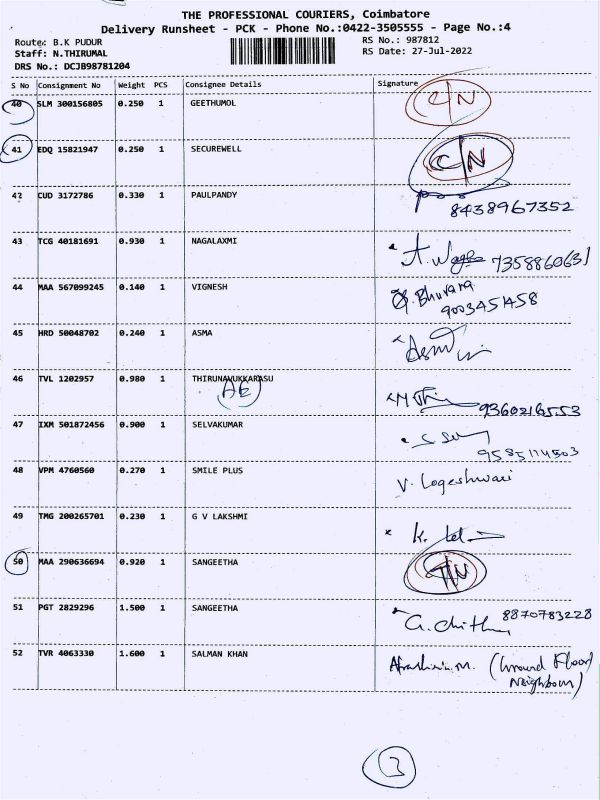 THE PROFESSIONAL COURIERS, Coimbatore
Delivery Runsheet - PCK - Phone No.:0422-3505555 - Page No.:4
Route: B.K PUDUR RS No.: 987812
Staff: N.THIRUMAL RS Date: 27-Jul-2022
DRS No.: DCJB98781204
S No Consignment No Weight PCS Consignee Details Signature
40 SLM 300156805 0.250 1 GEETHUMOL C/N
41 EDQ 15821947 0.250 1 SECUREWELL C/N
42 CUD 3172786 0.330 1 PAULPANDY
8438967352
43 TCG 40181691 0.930 1 NAGALAXMI
7358860631
44 MAA 567099245 0.140 1 VIGNESH Bhuvana
9003451458
45 HRD 50048702 0.240 1 ASMA
46 TVL 1202957 0.980 1 THIRUNAVUKKARASU
9360216553
47 IXM 501872456 0.900 1 SELVAKUMAR
9585114503
48 VPM 4760560 0.270 1 SMILE PLUS V. Logeshwari
49 TMG 200265701 0.230 1 G V LAKSHMI
50 MAA 290636694 0.920 1 SANGEETHA
51 PGT 2829296 1.500 1 SANGEETHA 8870783228
52 TVR 4063330 1.600 1 SALMAN KHAN (Ground Floor
Neighbour)
3